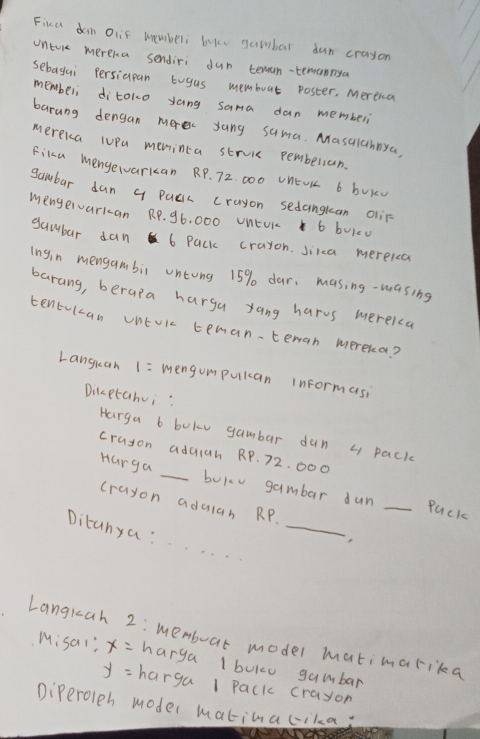 Fika dan Olif memberi buku gambar dan crayon
untuk mereka sendiri dan teman-temannya
sebagai persiapan tugas membuat poster. Mereka
membeli di toko yang sama dan membeli
barang dengan merek yang sama. Masalahnya,
mereka lupa meminta struk pembelian.
Fika mengeluarkan RP.72.000 untuk 6 buku
gambar dan 4 pack crayon sedangkan olif
mengeluarkan RP.96.000 untuk 6 buku
gambar dan 6 pack crayon. Jika mereka
ingin mengambil untung 15% dari masing-masing
barang, berapa harga yang harus mereka
tentukan untuk teman-teman mereka?
Langkah 1 = mengumpulkan informasi
Diketahui :
Harga 6 buku gambar dan 4 pack
crayon adalah RP.72.000
Harga __ buku gambar dan __ pack
crayon adalah RP. ____.
Ditanya : .......
Langkah 2 : membuat model matimatika
misal: x = harga 1 buku gambar
y = harga 1 pack crayon
Diperoleh model matimatika :